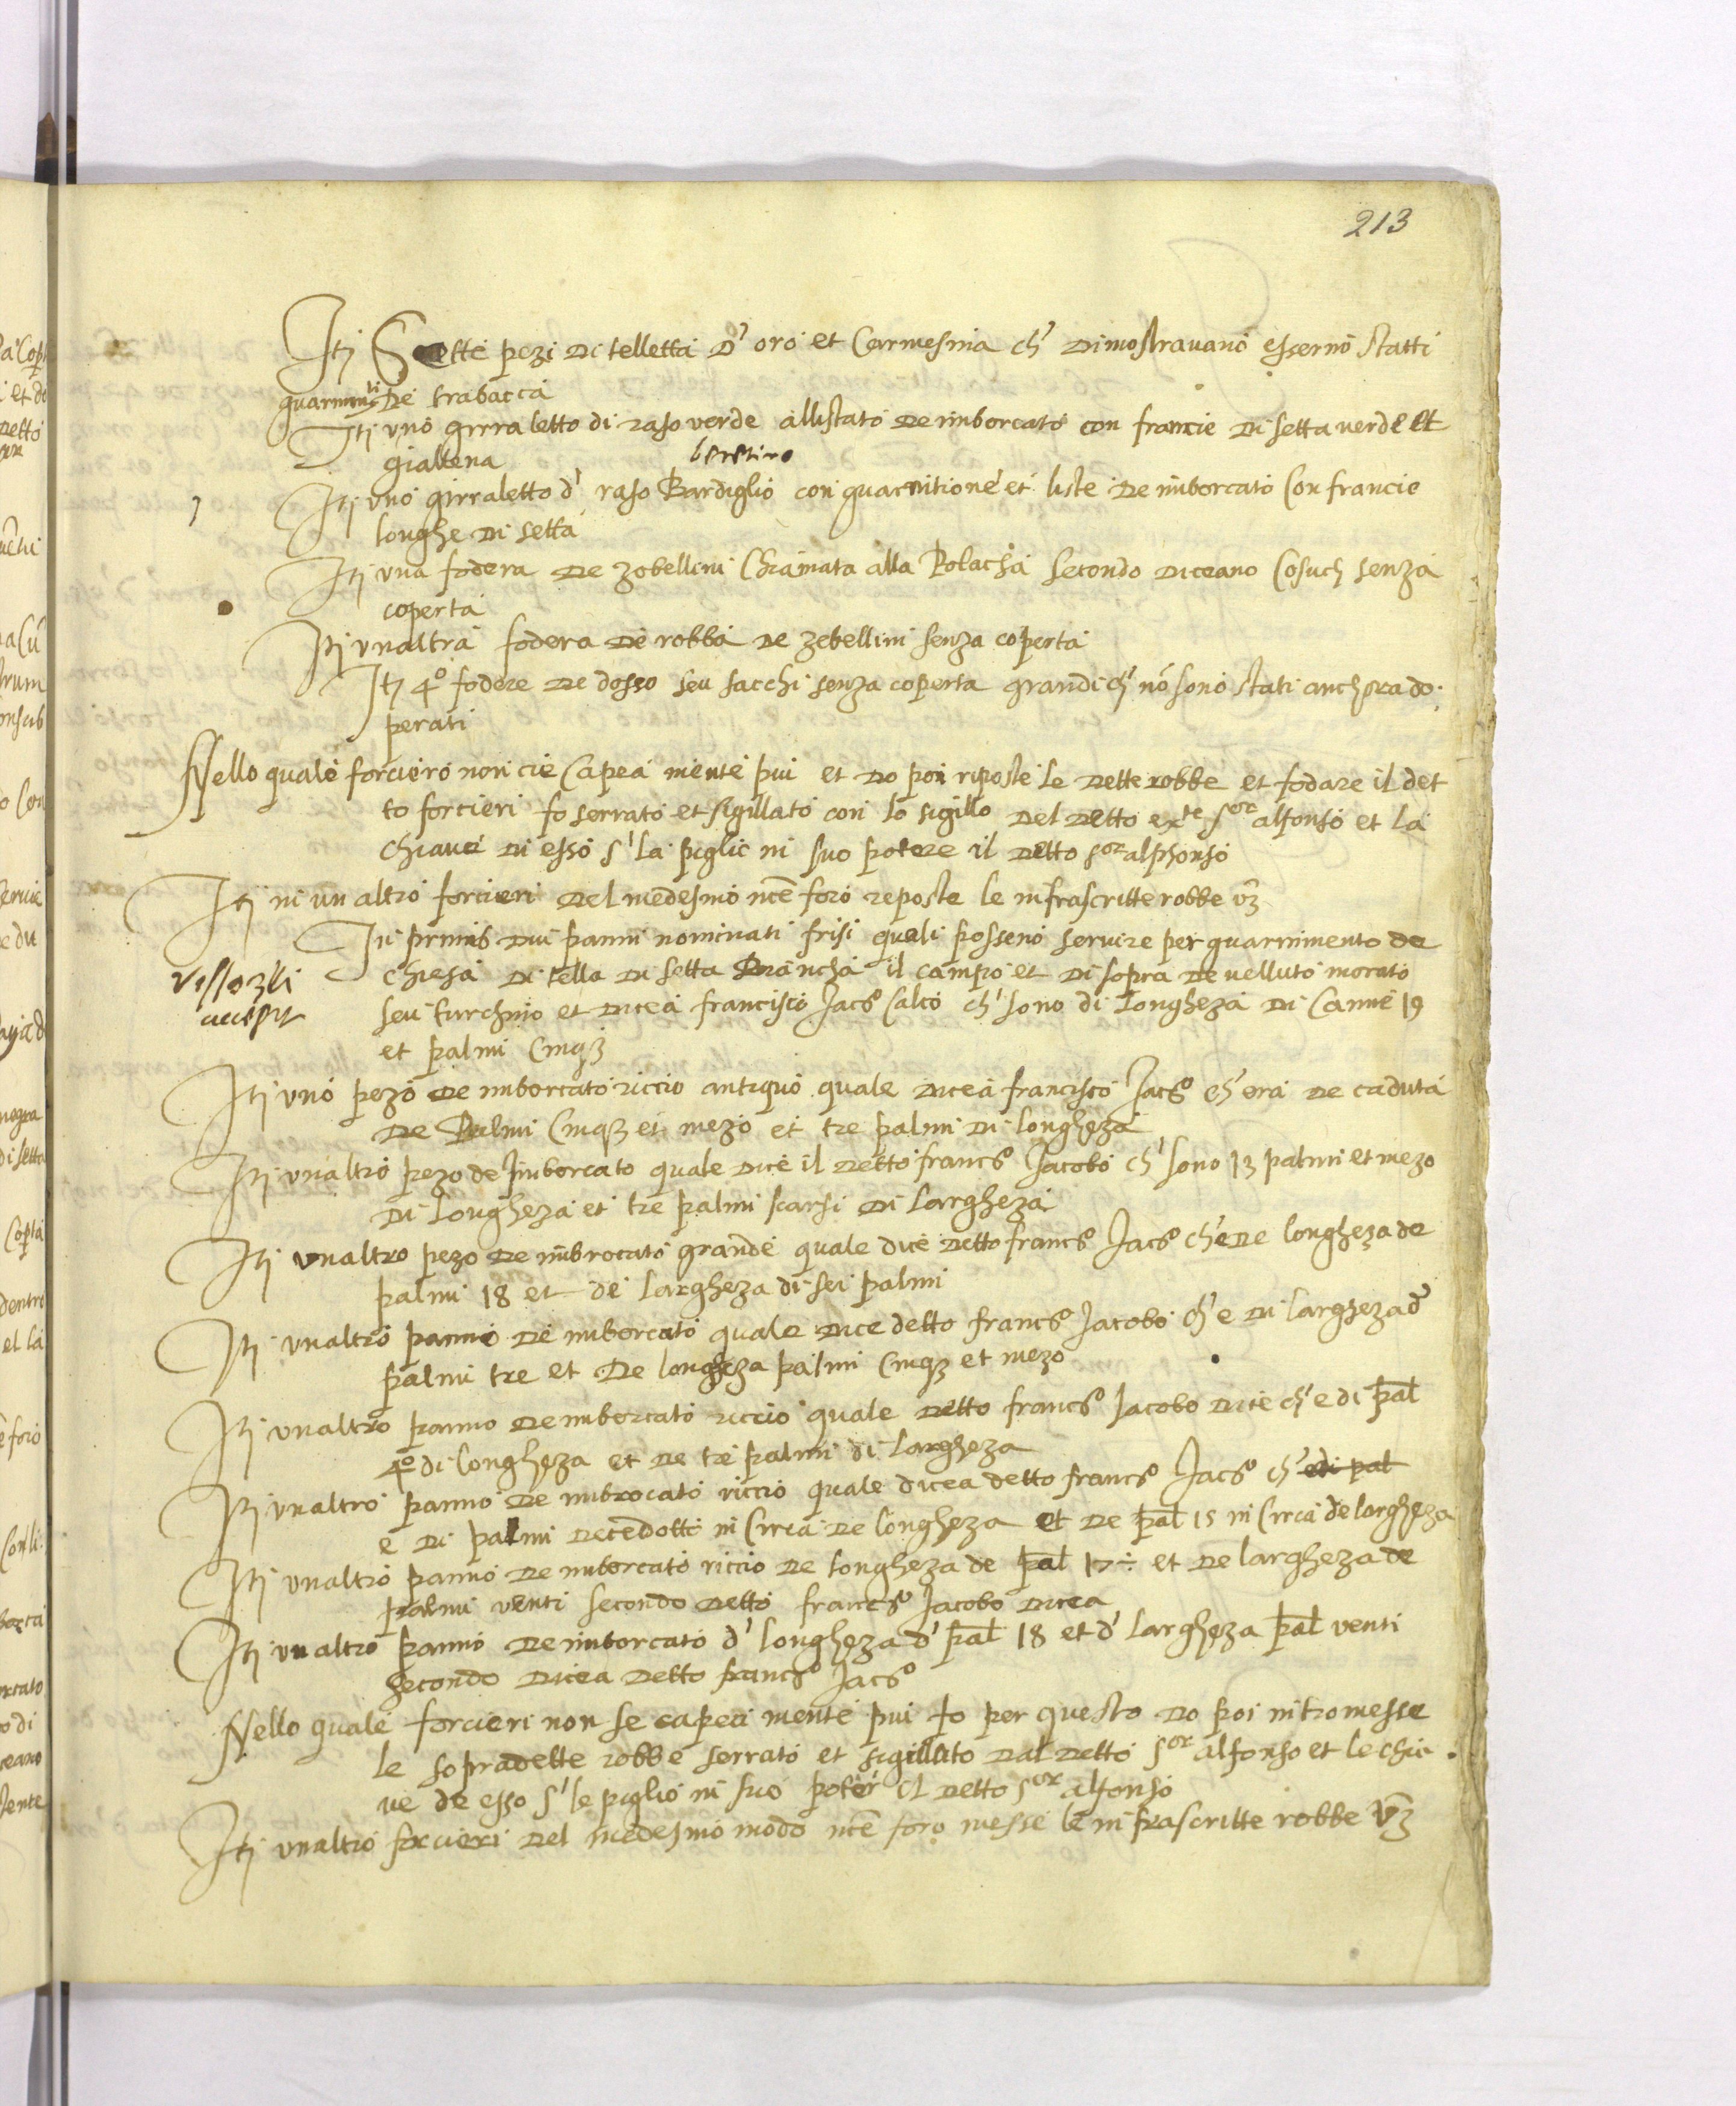 213
Itj Sette pezi di telletta d' oro et Carmesina ch' dimostravano esserno statti
guarnimti de trabacca
Itj uno girraletto di raso verde allistato de imborcato con francie di setta verde et
giallena
berretino
Itj uno girraletto d' raso Bardiglio con guarnitione et liste de imborcato Con francie
longhe di setta
Itj una fodera de zobellini Chiamata alla Polacha secondo diceano Cosuch senza
coperta
Itj unaltra fodera de robba de zebellini senza coperta
Itj 4° fodere de dosso seu sacchi senza coperta grandi ch' nō sono stati anchora do
perati
Nello quale forciero non cie Capea niente piu et do poi riposte le dette robbe et fodare il det
to forcieri fo serrato et sigillato con lo sigillo del detto exte sor alfonso et la
chiave di esso s' la piglio in suo potere il detto sor alphonso
Itj in un altro forcieri del medesmo ncē foro reposte le infrascritte robbe vz
In primis dui panni nominati frisi quali posseno servire per guarnimento de
chiesa di tella di setta Biancha il campo et di sopra de velluto morato
accepit
seu turchino et dicea francisco Jaco Calco ch' sono di Longheza di Canne 19
et palmi Cinqz
Itj uno pezo de imborcato riccio antiquo quale dicea francisco Jaco ch' era de caduta
de Palmi Cinqz et mezo et tre palmi di longheza
Itj unaltro pezo de Imborcato quale dice il detto franco Jacobo ch' sono 13 palmi et mezo
di Longheza et tre palmi scarsi di Largheza
Itj unaltro pezo de imbrocato grande quale dice detto franco Jaco ch'e de longheza de
palmi 18 et de Largheza di sei palmi
Itj unaltro panno de imborcato quale dice detto franco Jacobo ch' e di largheza d'
palmi tre et de longheza palmi Cinqz et mezo
Itj unaltro panno de imborcato riccio quale detto franco Jacobo dice ch' e di pal
4° di longheza et de tre palmi di Largheza
Itj unaltro panno de imbrocato riccio quale dicea detto franco Jaco ch' e di pal
e di palmi decedotto in Circa de longheza et de pal 15 in Circa de largheza
Itj unaltro panno de imborcato riccio de longheza de pal 17÷ et de largheza de
palmi venti secondo detto franco Jacobo dicea
Itj un altro panno de imborcato d' longheza d' pal 18 et d' Largheza pal venti
secondo dicea detto franco Jaco
Nello quale forcieri non se capeci niente piu fo per questo do poi intromesse
le sopradette robbe serrato et sigillato dal detto sor alfonso et le chia
ve de esso s' le piglio in suo poter el detto sor alfonso
Itj unaltro forcieri del medesmo modo ncē foro messe le infrascritte robbe vz